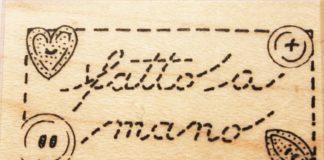 fatto a
mano